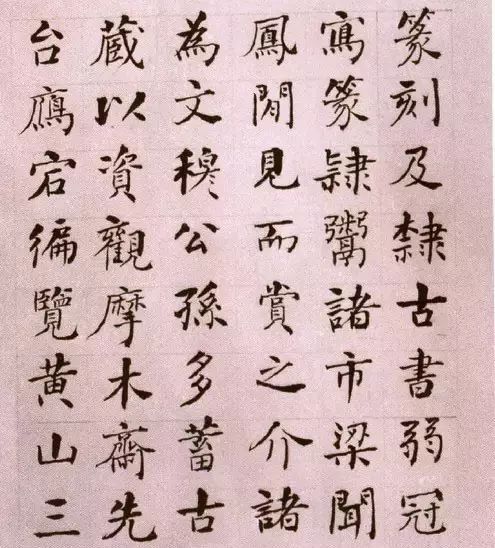 篆刻及隸古書弱冠
寫篆隸鬻諸市梁聞
鳳閒見而賞之介諸
為文穆公孫多蓄古
蔵以資觀摩木齋先
台鴈宕徧覽黄山三